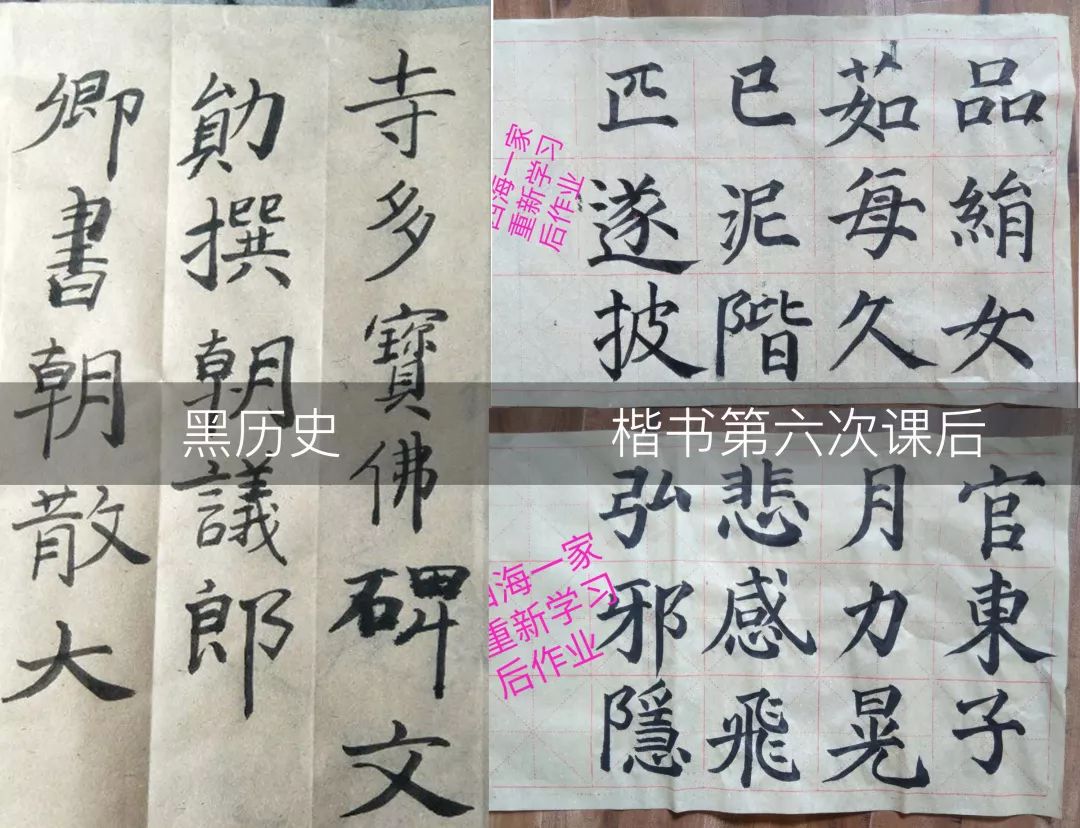 寺多寶佛碑文
勛撰朝議郎
卿書朝散大
黑历史
品絹女
茹每久
已泥階
匹遂披
海一家
重新学习
后作业
楷书第六次课后
官東子
月力晃
悲感飛
弘邪隱
海一家
重新学习
后作业